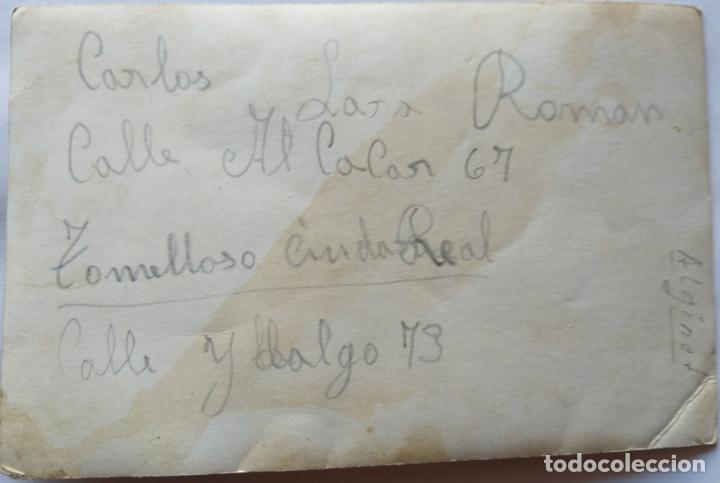 Carlos Lara Roman
Calle Al Cacar 67
Tomelloso Ciudad Real
Calle Ydalgo 73
Alginet
todocoleccion